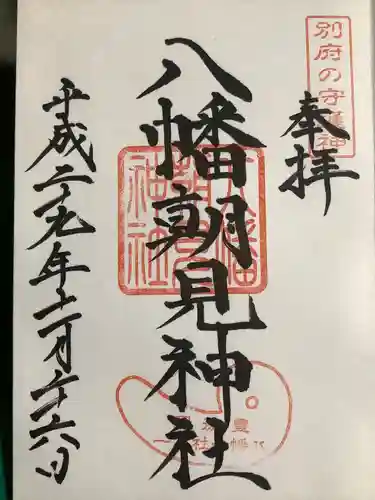 別府の守護神
奉拝
八幡朝見神社
平成二十九年十一月二十六日